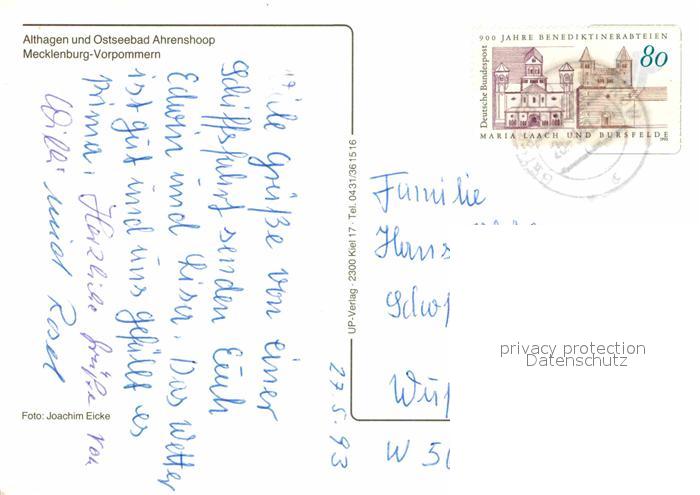 Althagen und Ostseebad Ahrenshoop
Mecklenburg-Vorpommern
Viele Grüße von einer
Schiffsfahrt senden Euch
Edwin und Lisa. Das Wetter
ist gut und uns gefällt es
prima. Herzliche Grüße von
Willi und Rosel
27.5.93
Foto: Joachim Eicke
UP-Verlag · 2300 Kiel 17 · Tel. 0431/361516
900 JAHRE BENEDIKTINERABTEIEN
80
Deutsche Bundespost
MARIA LAACH UND BURSFELDE
1993
Familie
Hans
Wup
W 56
privacy protection
Datenschutz